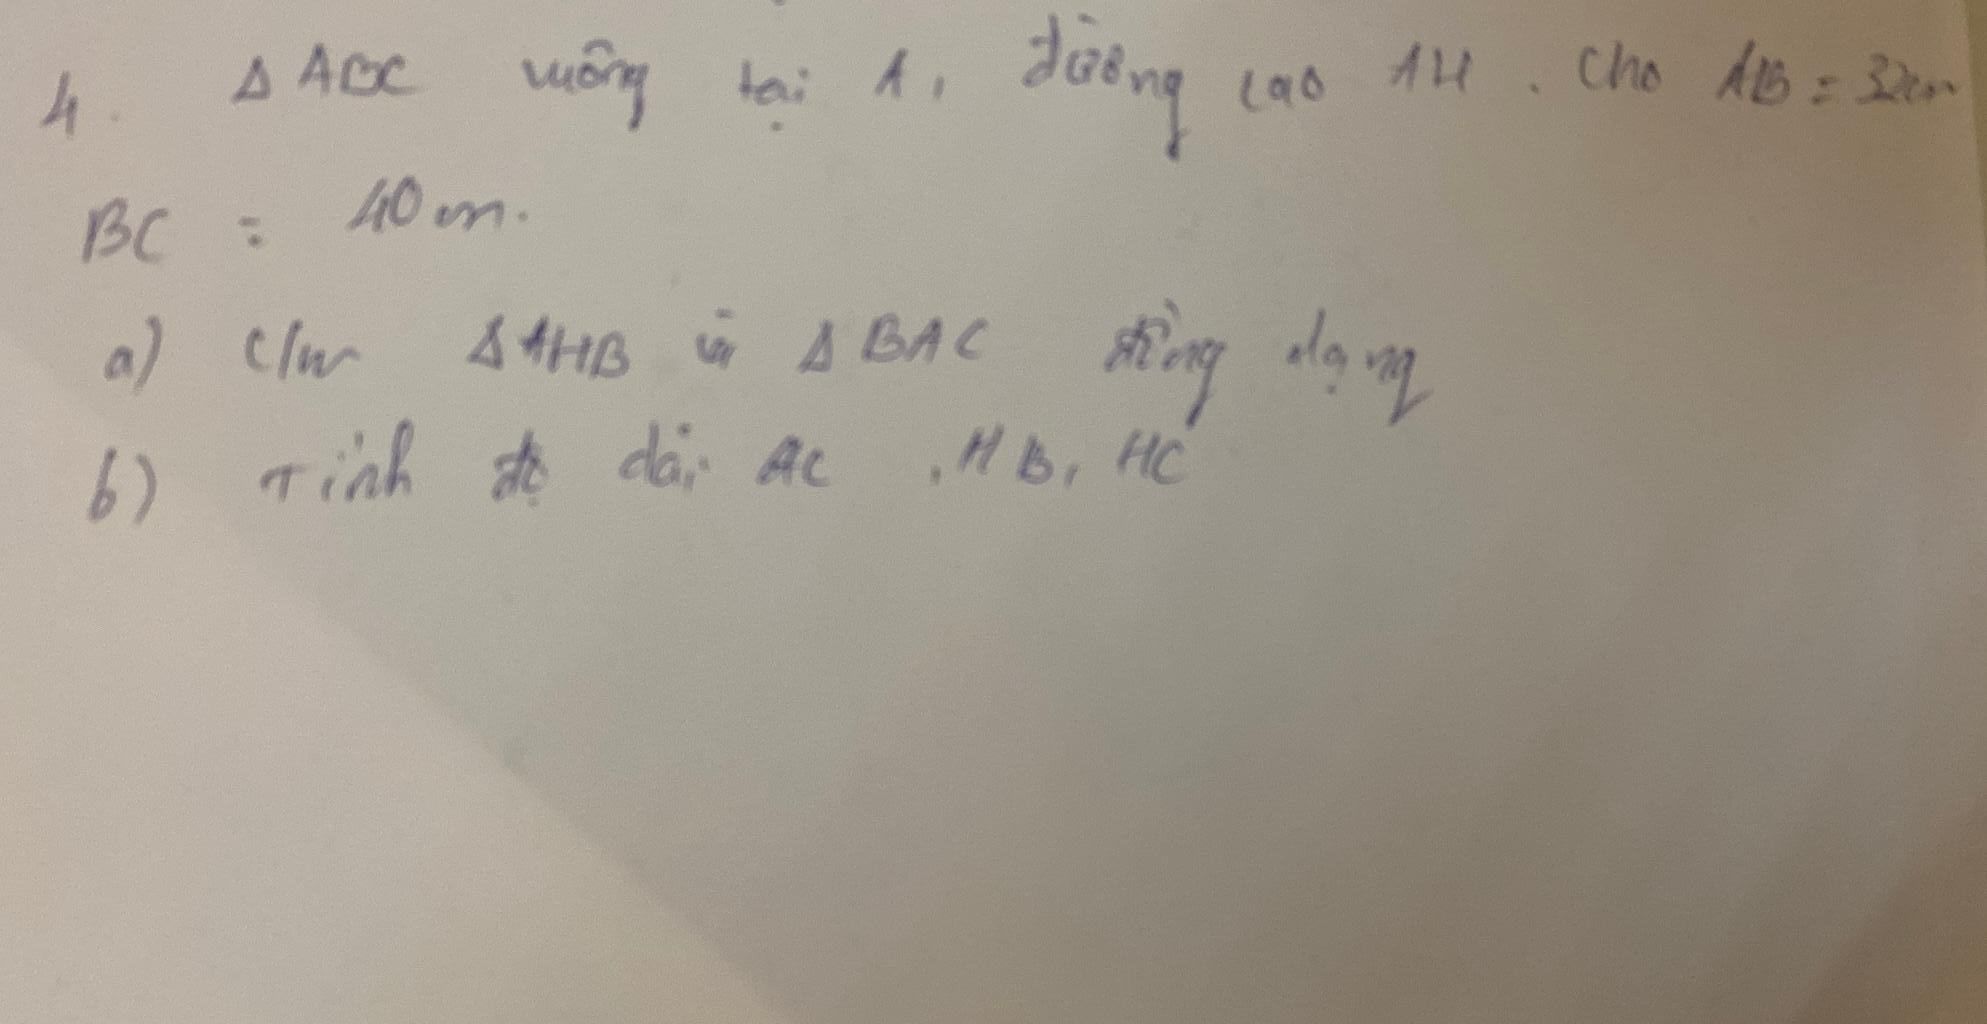 4. Δ ABC vuông tại A, đường cao AH. Cho AB = 32cm
BC = 40cm.
a) C/m Δ AHB và Δ BAC đồng dạng
b) Tính độ dài AC, HB, HC